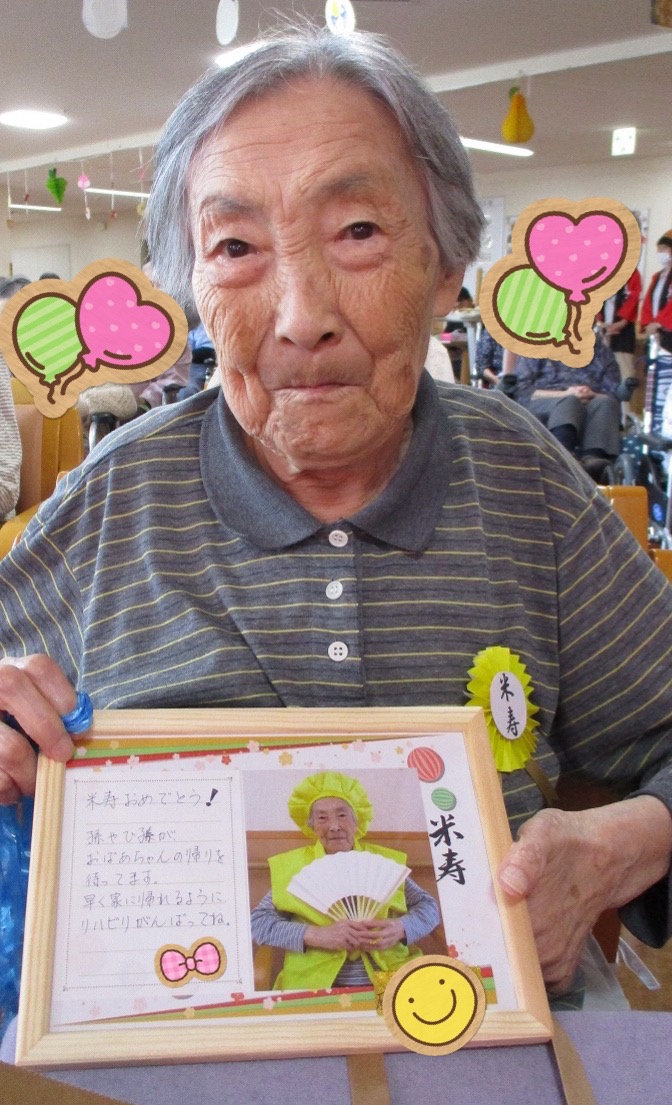 米寿
米寿おめでとう！
孫やひ孫が
おばあちゃんの帰りを
待ってます。
早く家に帰れるように
リハビリがんばってね。
米寿